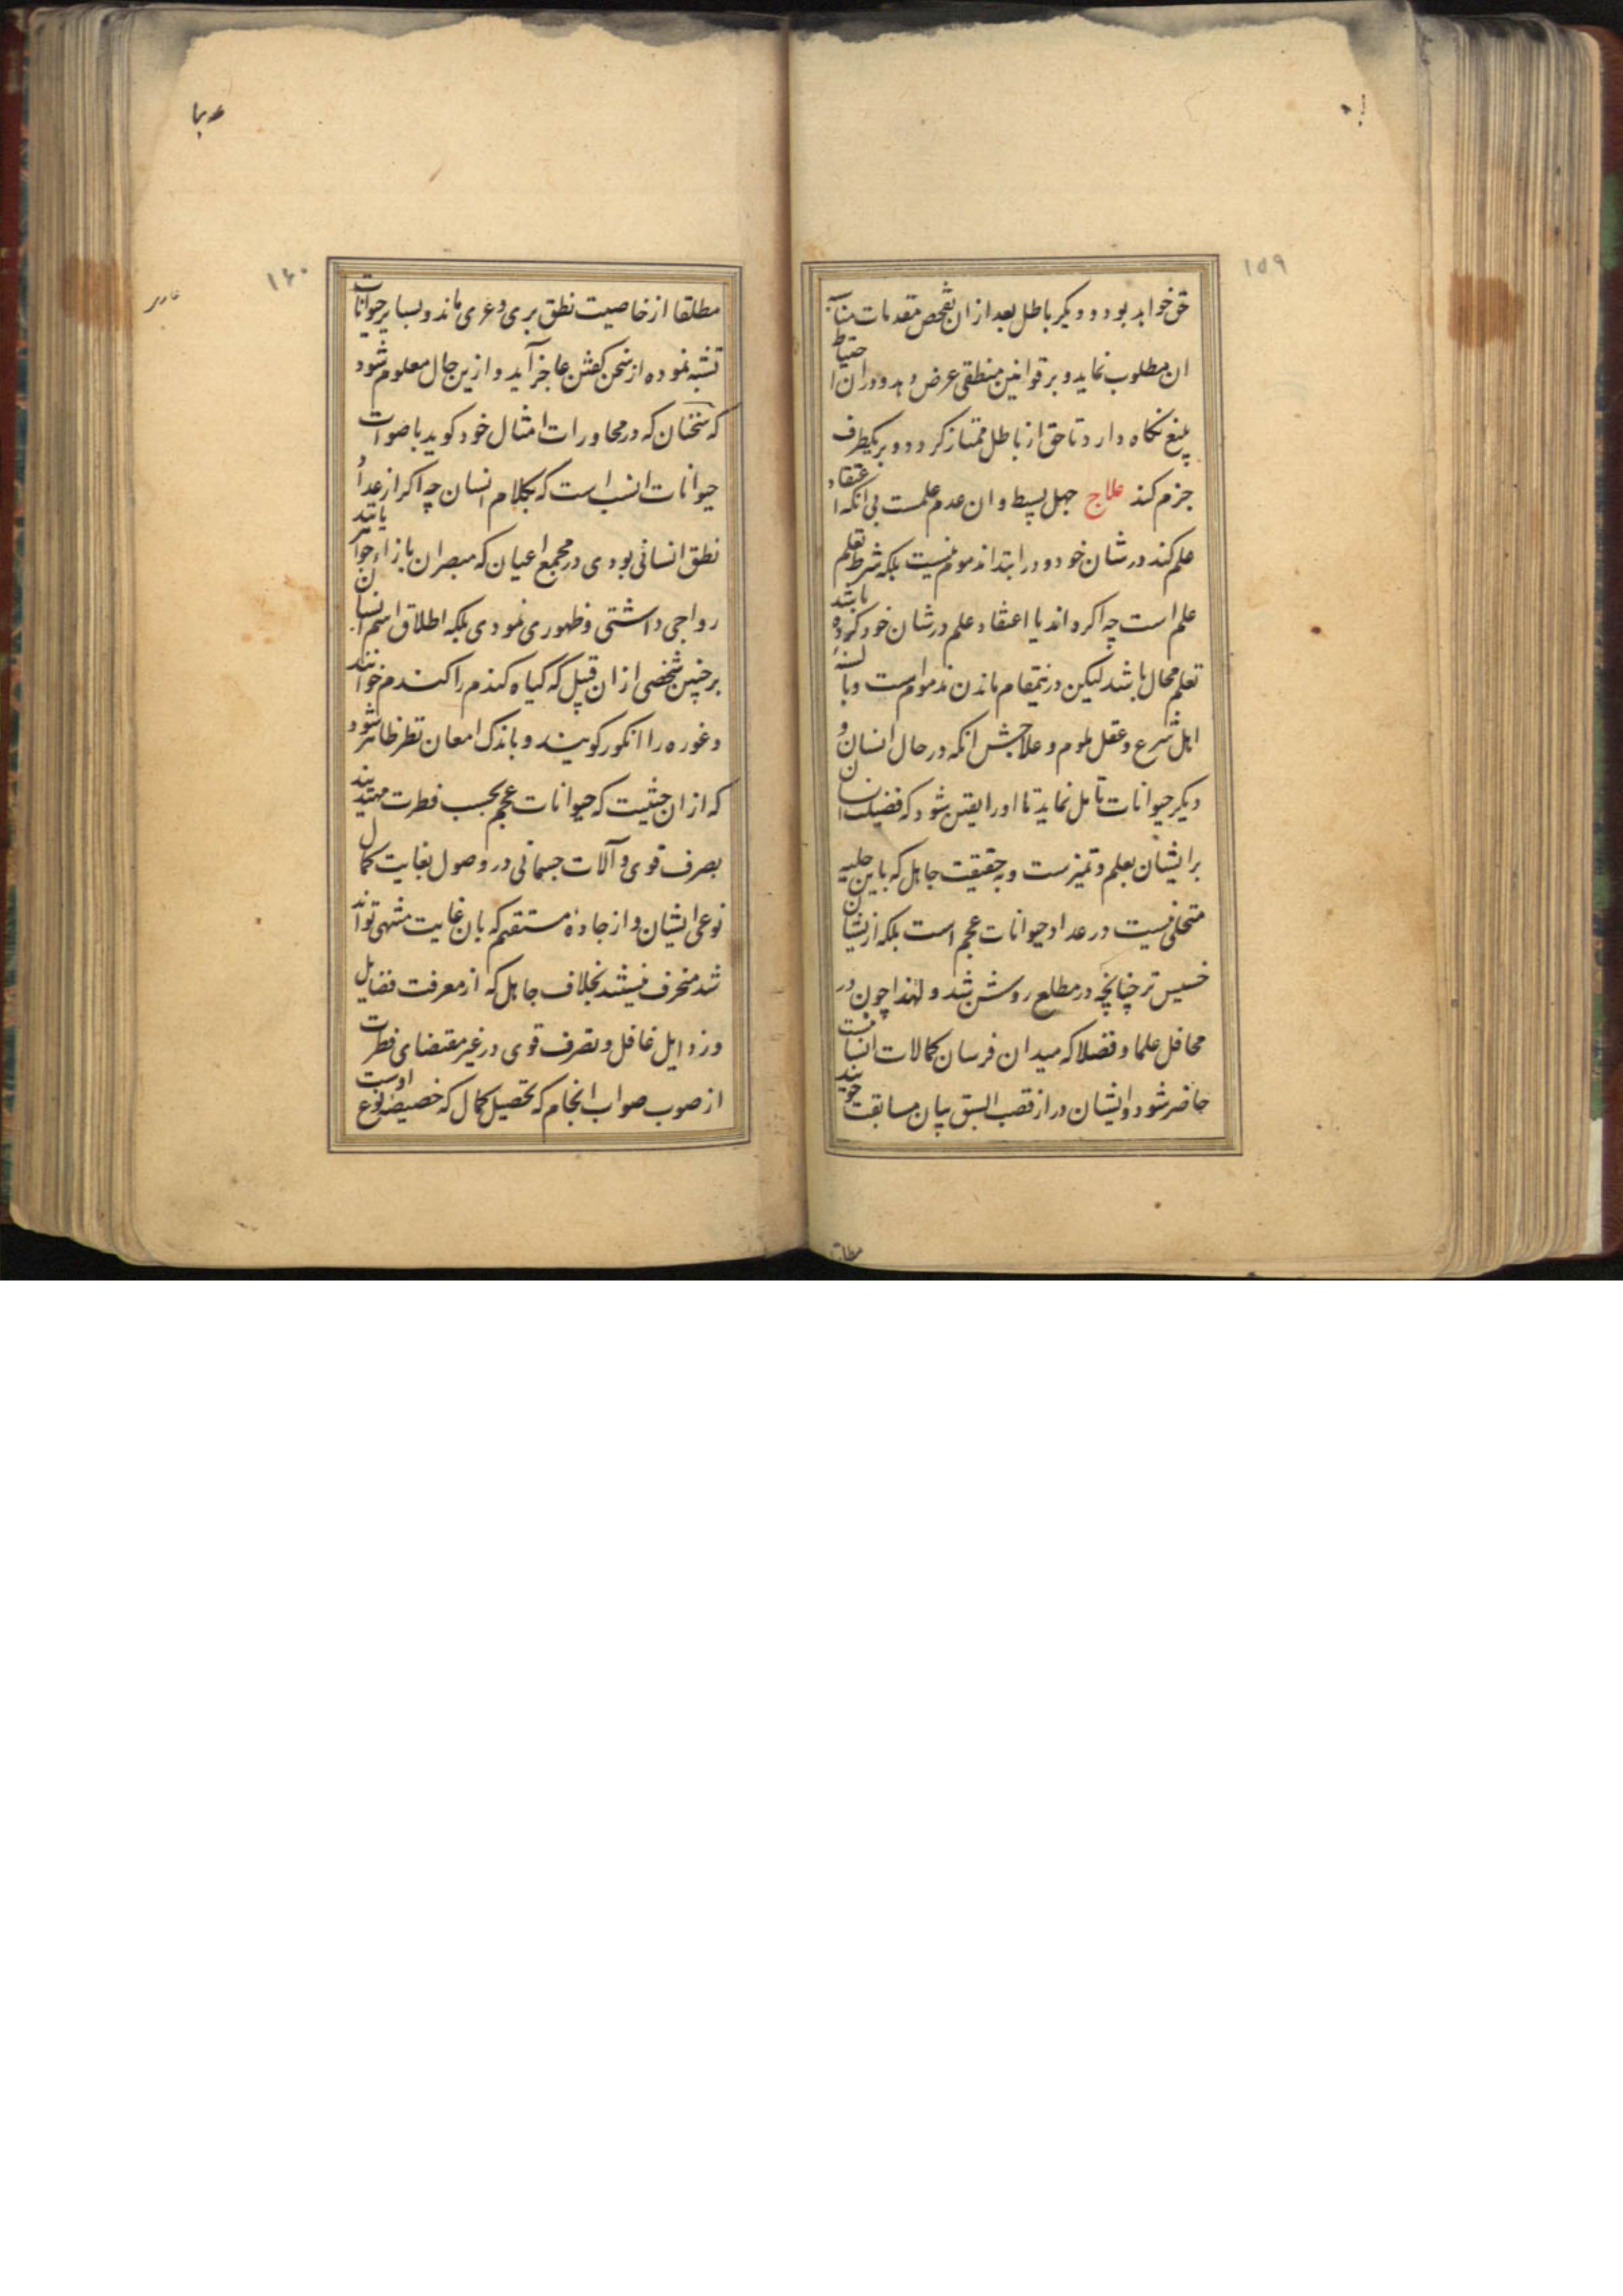 ۱۵۹
حق خواهد بود و دیگر باطل بعد از ان تفحص مقدمات مناسبه
ان مطلوب نماید و بر قوانین منطقی عرض دهد و در ان احتیاط
بلیغ نکاه دارد تا حق از باطل ممتاز کردد و بر یکطرف
جزم کند علاج جهل بسیط و ان عدم علمست بی انکه اعتقاد
علم کند در شان خود و در ابتدا مذموم نیست بلکه شرط تعلم
علم است چه اکر داند یا اعتقاد علم در شان خود کرده باشد
تعلم محال باشد لیکن درینمقام ماندن مذموم است و بالسنه
اهل شرع و عقل ملوم و علاجش انکه در حال انسان و
دیکر حیوانات تامل نماید تا او را یقین شود که فضیلت انسان
بر ایشان بعلم و تمیزست و به حقیقت جاهل که باین حلیه
متحلی نیست در عداد حیوانات عجم است بلکه ازیشان
خسیس تر چنانچه در مطلع روشن شد و لهذا چون در
محافل علما و فضلا که میدان فرسان کمالات انسانیست
حاضر شود و ایشان در از قصب السبق بیان مسابقت جویند
۱۶۰
مطلقا از خاصیت نطق بری و عری ماند و بسایر حیوانات
تشبه نموده از سخن کفتن عاجز آید و ازین حال معلوم شود
که سخنان که در محاورات امثال خود کوید باصوات
حیوانات انسب است که بکلام انسان چه اکر از عداد
نطق انسانی بودی در مجمع اعیان که مبصران بازار جوانند
رواجی داشتی و ظهوری نمودی بلکه اطلاق اسم انسان
بر چنین شخصی از ان قبیل که کیاه کندم را کندم خوانند
و غوره را انکور کویند و باندک امعان نظر ظاهر شود
که از ان حیثیت که حیوانات عجم بحسب فطرت مهتدیند
بصرف قوی و آلات جسمانی در وصول بغایت کمال
نوعی ایشان و از جاده مستقیم که بان غایت منتهی تواند
شد منحرف نیستند بخلاف جاهل که از معرفت فضایل
و رذایل غافل و بصرف قوی در غیر مقتضای فطرت
از صوب صواب انجام که تحصیل کمال که خصیصه نوع اوست